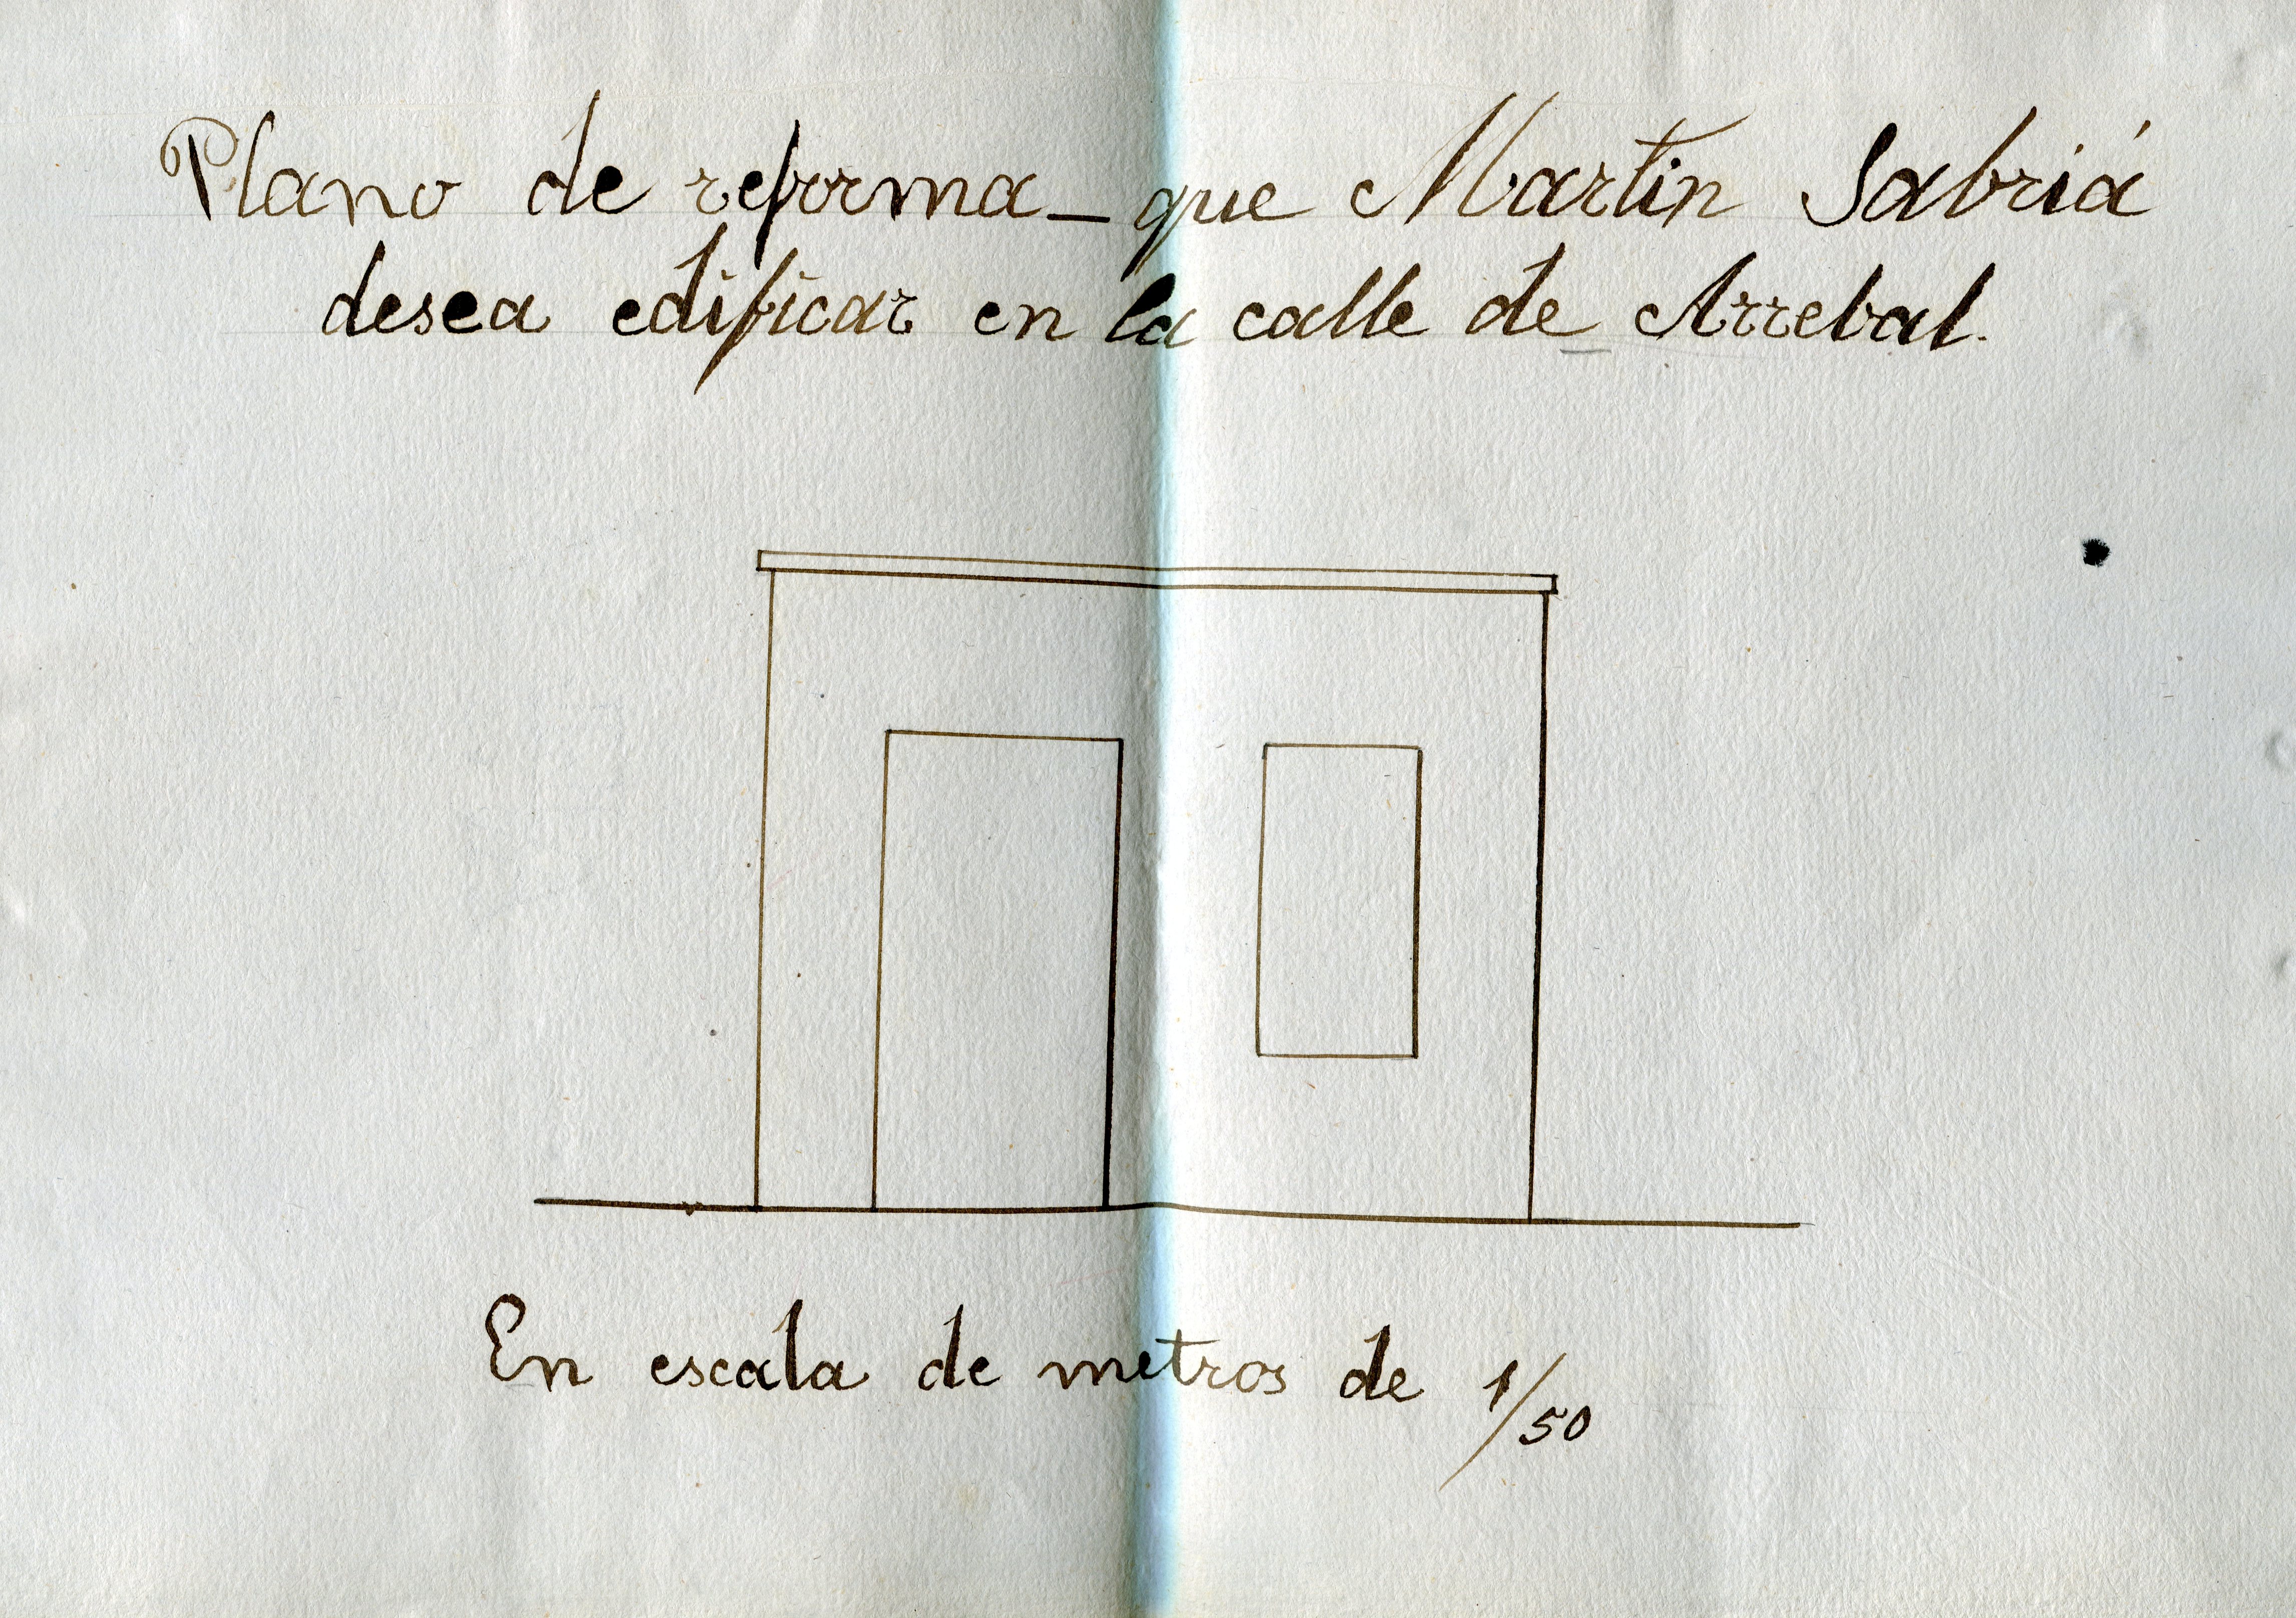 Plano de reforma_que Martin Sabriá
desea edificar en la calle de Arrebal.
En escala de metros de 1/50